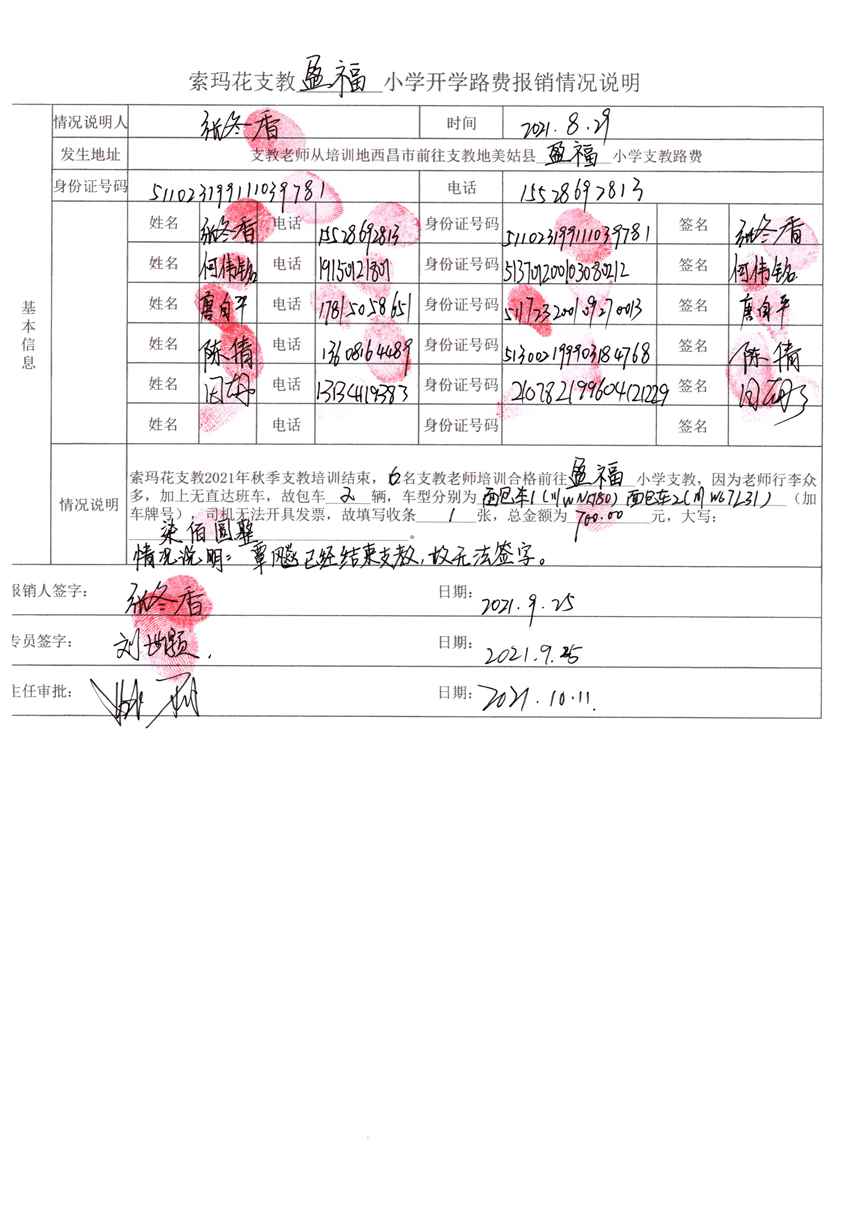 索玛花支教 盈福 小学开学路费报销情况说明
情况说明人 张冬香 时间 2021.8.29
发生地址 支教老师从培训地西昌市前往支教地美姑县 盈福 小学支教路费
身份证号码 511023199111039781 电话 15528692813
基本信息
姓名 张冬香 电话 15528692813 身份证号码 511023199111039781 签名 张冬香
姓名 何伟铭 电话 19150121801 身份证号码 513701200103080212 签名 何伟铭
姓名 唐自平 电话 17815058651 身份证号码 511723200109270013 签名 唐自平
姓名 陈倩 电话 13608164489 身份证号码 513002199903184768 签名 陈倩
姓名 电话 13134419383 身份证号码 210782199604121229 签名
姓名 电话 身份证号码 签名
情况说明
索玛花支教2021年秋季支教培训结束,6名支教老师培训合格前往 盈福 小学支教,因为老师行李众
多,加上无直达班车,故包车 2 辆,车型分别为 面包车1(川WN5780) 面包车2(川W67L31) (加
车牌号),司机无法开具发票,故填写收条 1 张,总金额为 700.00 元,大写:
柒佰圆整 。
情况说明:覃飚已经结束支教,故无法签字。
报销人签字: 张冬香 日期: 2021.9.25
专员签字: 刘世颖. 日期: 2021.9.25
主任审批: 日期: 2021.10.11.